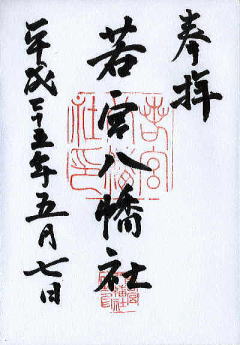 奉拝
若宮八幡社
平成二十五年五月七日